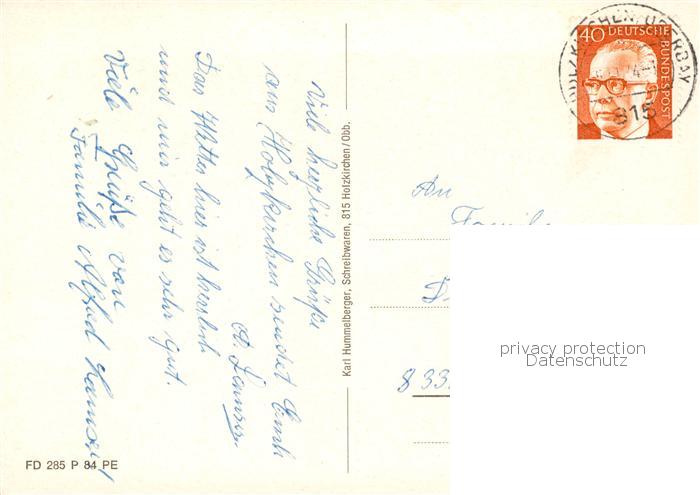 Viele herzliche Grüße
aus Holzkirchen sendet Euch
A.
Das Wetter hier ist herrlich
und mir geht es sehr gut.
Viele Grüße von
Familie Alfred
Karl Hummelberger, Schreibwaren, 815 Holzkirchen/Obb.
FD 285 P 84 PE
40 DEUTSCHE
BUNDESPOST
HOLZKIRCHEN, OBERBAY
815
An
Familie
833
privacy protection
Datenschutz